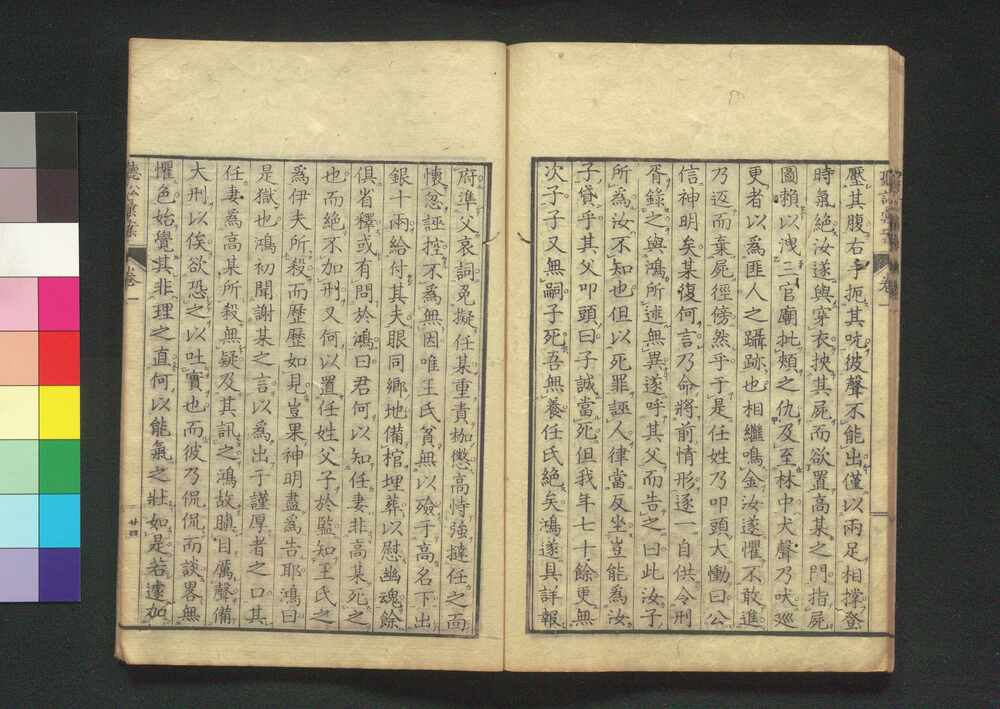 壓其腹右手扼其吭彼聲不能出僅以兩足相撐登
時氣絕汝遂與穿衣挾其屍而欲置高某之門指屍
圖賴以洩三官廟批頰之仇及至林中犬聲乃吠巡
更者以爲匪人之躡跡也相繼鳴金汝遂懼不敢進
乃返而棄屍徑傍然乎于是任姓乃叩頭大慟曰公
信神明矣某復何言乃命將前情形逐一自供令刑
胥錄之與鴻所述無異遂呼其父而告之曰此汝子
所爲汝不知也但以死罪誣人律當反坐豈能爲汝
子貸乎其父叩頭曰子誠當死但我年七十餘更無
次子子又無嗣子死吾無養任氏絕矣鴻遂具詳報
府準父哀詞免擬任某重責枷懲高恃強撻任之面
懷忿誣控不爲無因唯王氏貧無以殮于高名下出
銀十兩給付其夫眼同鄉地備棺埋葬以慰幽魂餘
俱省釋或有問於鴻曰君何以知任妻非高某死之
也而絕不加刑又何以置任姓父子於監知王氏之
爲伊夫所殺而歷歷如見豈果神明盡爲告耶鴻曰
是獄也鴻初聞謝某之言以爲出于謹厚者之口其
任妻爲高某所殺無疑及其訊之鴻故瞋目厲聲備
大刑以俟欲恐之以吐實也而彼乃侃侃而談畧無
懼色始覺其非理之直何以能氣之壯如是若遽加
卷一
廿四